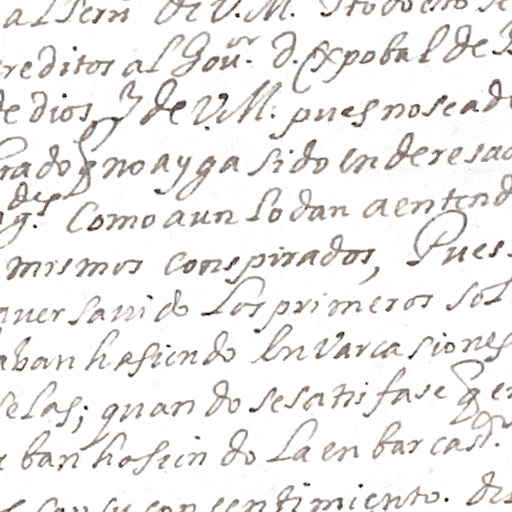 al serui de V.M. Y todo esto se
creditos al Gouor. d. Xpobal de
de dios, y de V.M. pues no se ad
rado q no ayga sido en deresad
Como aun lo dan a entend
mismos conspirados, Pues
auer sauido los primeros sol
aban hasiendo En varcasiones
selas; quando se satisfase q en
iban hasiendo la en barcasn.
con sentimiento. de